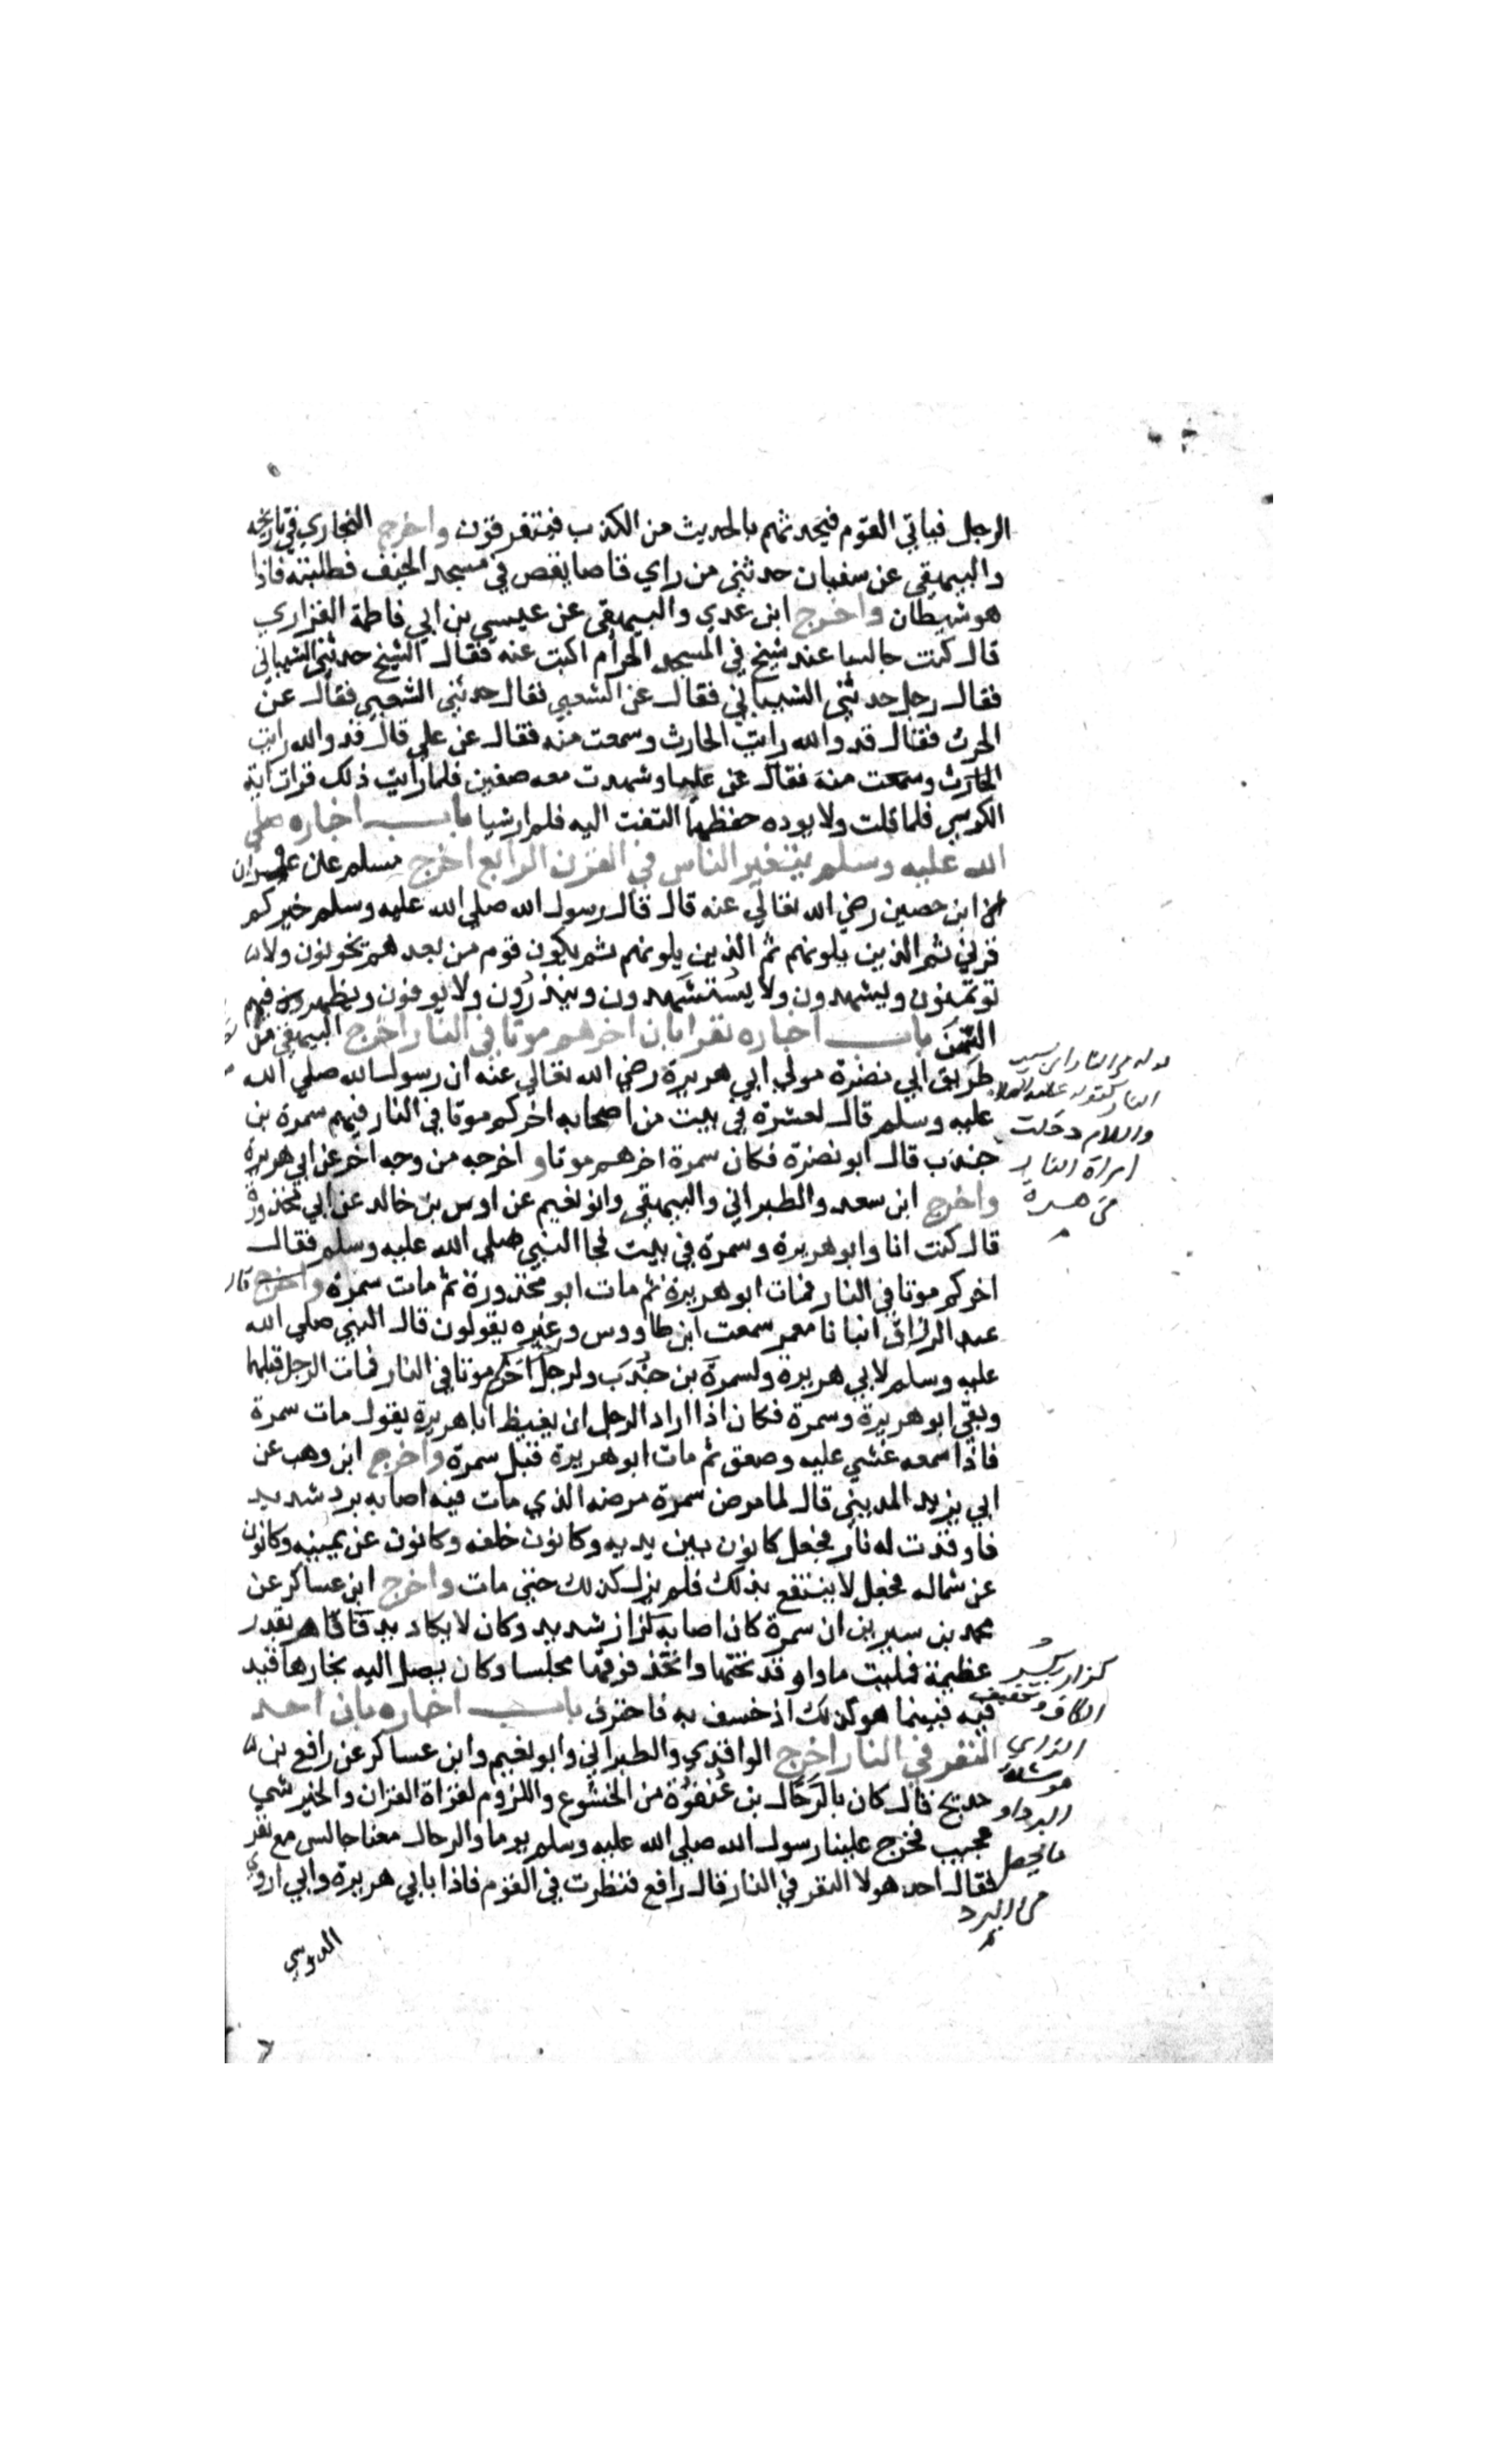 الرجل فياتي القوم فيحدثهم بالحديث من الكذب فيتفرقون واخرج البخاري في تاريخه
والبيهقي عن سفيان حدثني من راي قاصا يقص في مسجد الخيف فطلبته فاذا
هو شيطان واخرج ابن عدي والبيهقي عن عيسي بن ابي فاطمة الفزاري
قال كنت جالسا عند شيخ في المسجد الحرام اكتب عنه فقال الشيخ حدثني الشيباني
فقال رجل حدثني الشيباني فقال عن الشعبي فقال حدثني الشعبي فقال عن
الحرث فقال قد والله رايت الحارث وسمعت منه فقال عن علي قال قد والله رايت
الحارث وسمعت منه فقال عن عليا وشهدت معه صفين فلما رايت ذلك قرات اية
الكرسي فلما قلت ولا يوده حفظهما التفت اليه فلم ار شيا باب اخباره صلي
الله عليه وسلم بتغير الناس في القرن الرابع اخرج مسلم عن عمران
ابن حصين رضي الله تعالي عنه قال قال رسول الله صلي الله عليه وسلم خيركم
قرني ثم الذين يلونهم ثم الذين يلونهم ثم يكون قوم من بعدهم يخونون ولا
توتمنون ويشهدون ولا يستشهدون وينذرون ولا يوفون ويظهر فيهم
السمن باب اخباره نفرا بان اخرهم موتا في النار اخرج البيهقي من
طريق ابي نضرة مولي ابي هريرة رضي الله تعالي عنه ان رسول الله صلي الله
عليه وسلم قال لعشرة في بيت من اصحابه اخركم موتا في النار فيهم سمرة بن
جندب قال ابو نضرة فكان سمرة اخرهم موتا واخرجه من وجه اخر عن ابي هريرة
واخرج ابن سعد والطبراني والبيهقي وابو نعيم عن اوس بن خالد عن ابي محذورة
قال كنت انا وابو هريرة وسمرة في بيت فجا النبي صلي الله عليه وسلم فقال
اخركم موتا في النار فمات ابو هريرة ثم مات ابو محذورة ثم مات سمرة واخرج قال
عبد الرزاق انبانا معمر سمعت ابن طاووس وغيره يقولون قال النبي صلي الله
عليه وسلم لابي هريرة ولسمرة بن جندب ولرجل اخر اخركم موتا في النار فمات الرجل قبلهما
وبقي ابو هريرة وسمرة فكان اذا اراد الرجل ان يغيظ ابا هريرة يقول مات سمرة
فاذا سمعه غشي عليه وصعق ثم مات ابو هريرة قبل سمرة واخرج ابن وهب عن
ابي يزيد المديني قال لما مرض سمرة مرضه الذي مات فيه اصابه برد شديد
فاوقدت له نار فجعل كانون بين يديه وكانون خلفه وكانون عن يمينه وكانون
عن شماله فجعل لا ينتفع بذلك فلم يزل كذلك حتي مات واخرج ابن عساكر عن
محمد بن سيرين ان سمرة كان اصابه كزاز شديد وكان لا يكاد يدفا فامر بقدر
عظيمة فمليت ماداو قد تحتها واتخذ فوقها مجلسا وكان يصل اليه بخارها فيد
فيه فبينما هو كذلك اذ خسف به فاحترق باب اخباره بان احد
النفر في النار اخرج الواقدي والطبراني وابو نعيم وابن عساكر عن رافع بن
خديج قال كان بالرحال بن عنفوة من الخشوع واللزوم لقراة القران والخير شي
عجيب فخرج علينا رسول الله صلي الله عليه وسلم يوما والرحال معنا جالس مع نفر
فقال احد هولا النفر في النار قال رافع فنظرت في القوم فاذا بابي هريرة وابي اروي
الدوسي
قوله في النار اي بسبب
النار كقوله عليه الصلاة
والسلام دخلت
امراة النار
في هرة
كزاز بكسر
الكاف وتخفيف
الزاي
هو شدة
البرد او
ما يحصل
من البرد